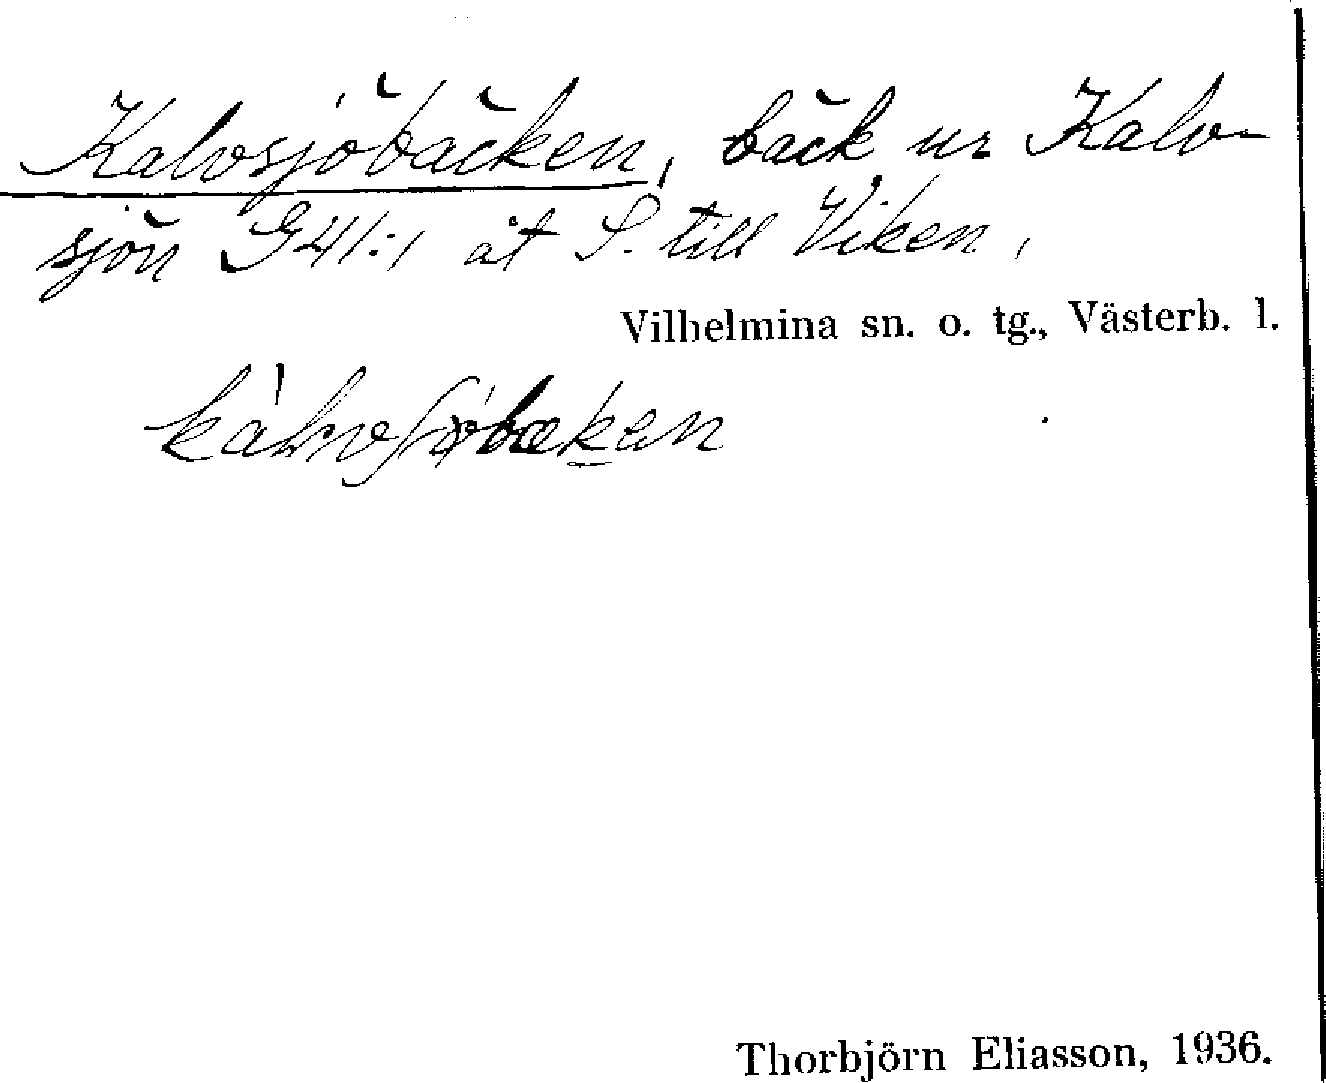 Kalvsjöbäcken, bäck ur Kalv-
sjön G41:1 åt S. till Viken,
Vilhelmina sn. o. tg., Västerb. l.
Thorbjörn Eliasson, 1936.